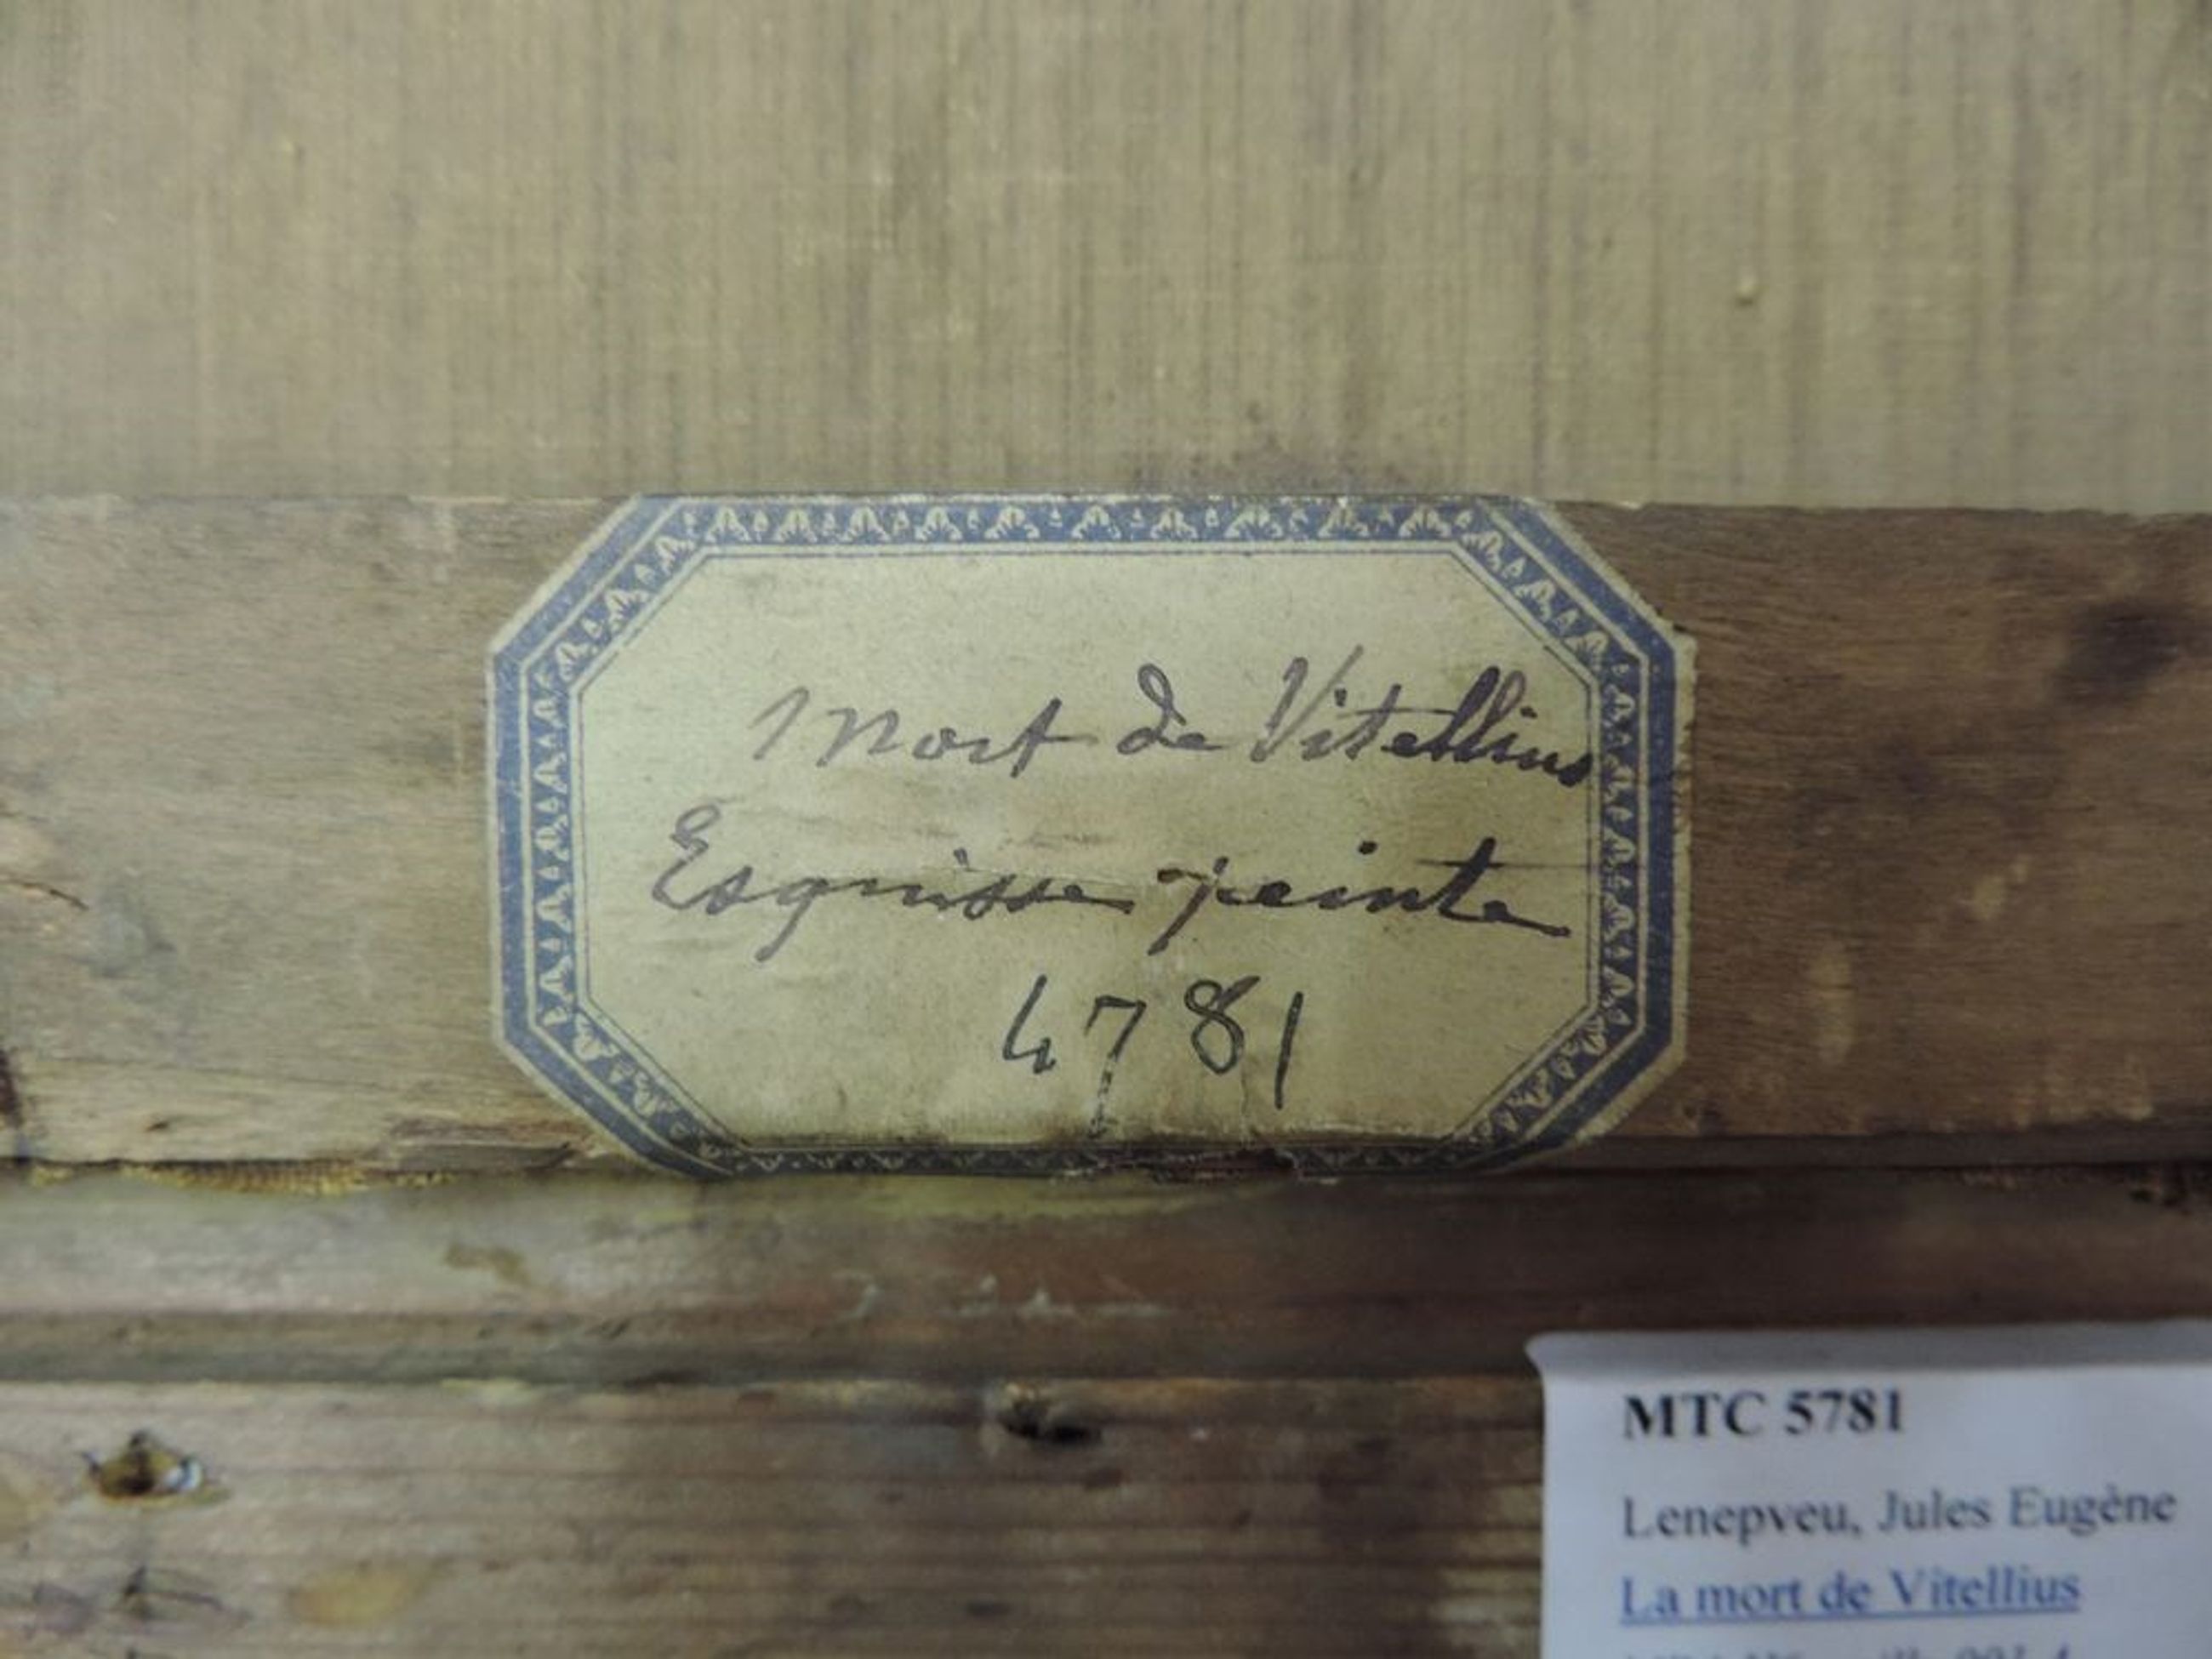 Mort de Vitellius
Esquisse peinte
4781
MTC 5781
Lenepveu, Jules Eugène
La mort de Vitellius